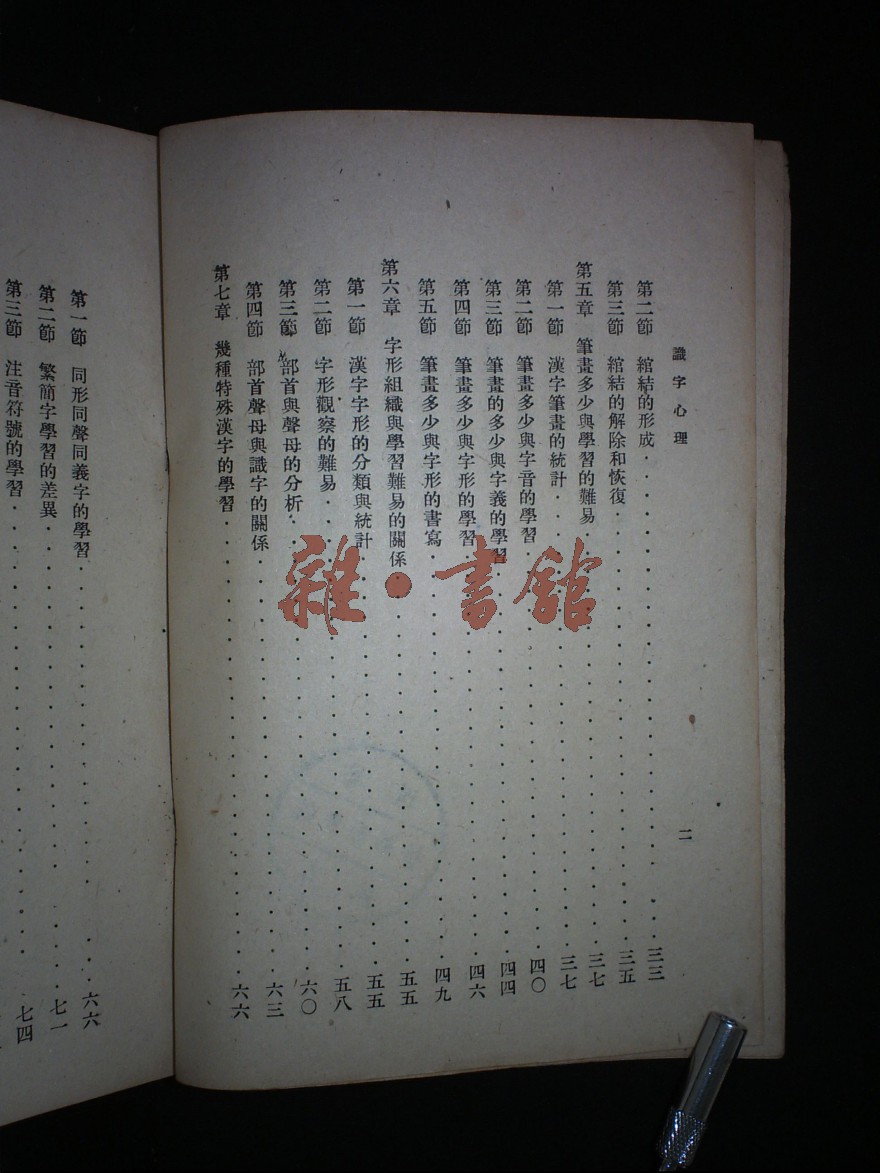 識字心理
二
第二節 綰結的形成 三三
第三節 綰結的解除和恢復 三五
第五章 筆畫多少與學習的難易 三七
第一節 漢字筆畫的統計 三七
第二節 筆畫多少與字音的學習 四〇
第三節 筆畫的多少與字義的學習 四四
第四節 筆畫多少與字形的學習 四六
第五節 筆畫多少與字形的書寫 四九
第六章 字形組織與學習難易的關係 五五
第一節 漢字字形的分類與統計 五五
第二節 字形觀察的難易 五八
第三節 部首與聲母的分析 六〇
第四節 部首聲母與識字的關係 六三
第七章 幾種特殊漢字的學習 六六
第一節 同形同聲同義字的學習 六六
第二節 繁簡字學習的差異 七一
第三節 注音符號的學習 七四
雜·書館